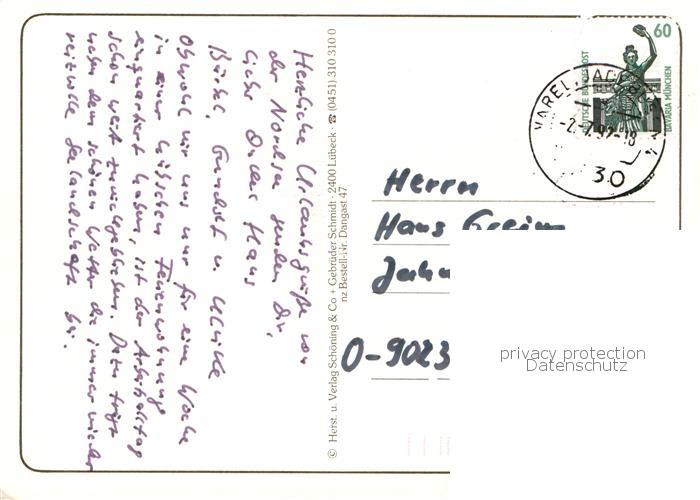 Herzliche Urlaubsgrüße von
der Nordsee senden Dir,
lieber Onkel Hans
Bärbel, Gundolf u. Ulrike
Obwohl wir uns nur für eine Woche
in einer hübschen Ferienwohnung
einquartiert haben, ist der Arbeitsalltag
schon weit zurückgeblieben. Dazu trägt
neben dem schönen Wetter die immer wieder
reizvolle Seelandschaft bei.
© Herst. u. Verlag Schöning & Co + Gebrüder Schmidt · 2400 Lübeck · ☎ (0451) 310 310 0
nz Bestell-Nr. Dangast 47
60
DEUTSCHE BUNDESPOST
BAVARIA MÜNCHEN
VAREL, JADEB
-2.-7.92-18
30
Herrn
Hans
Jahn
O-9023
privacy protection
Datenschutz